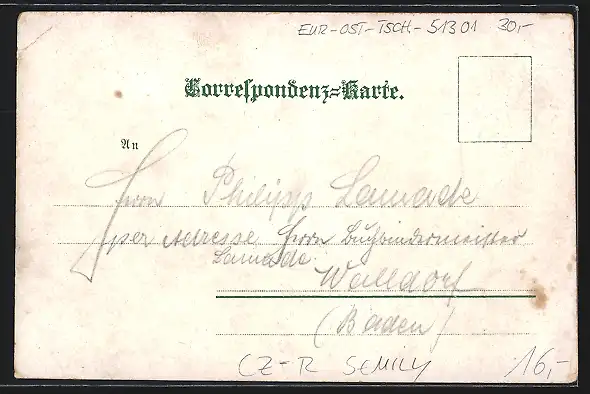 EUR-OST-TSCH.-51301 30,-
Correspondenz-Karte.
An
Herrn Philipp Lamade
per Adresse Herrn Buchbindermeister
Lamade
Walldorf
(Baden)
CZ-R SEMILY 16,-